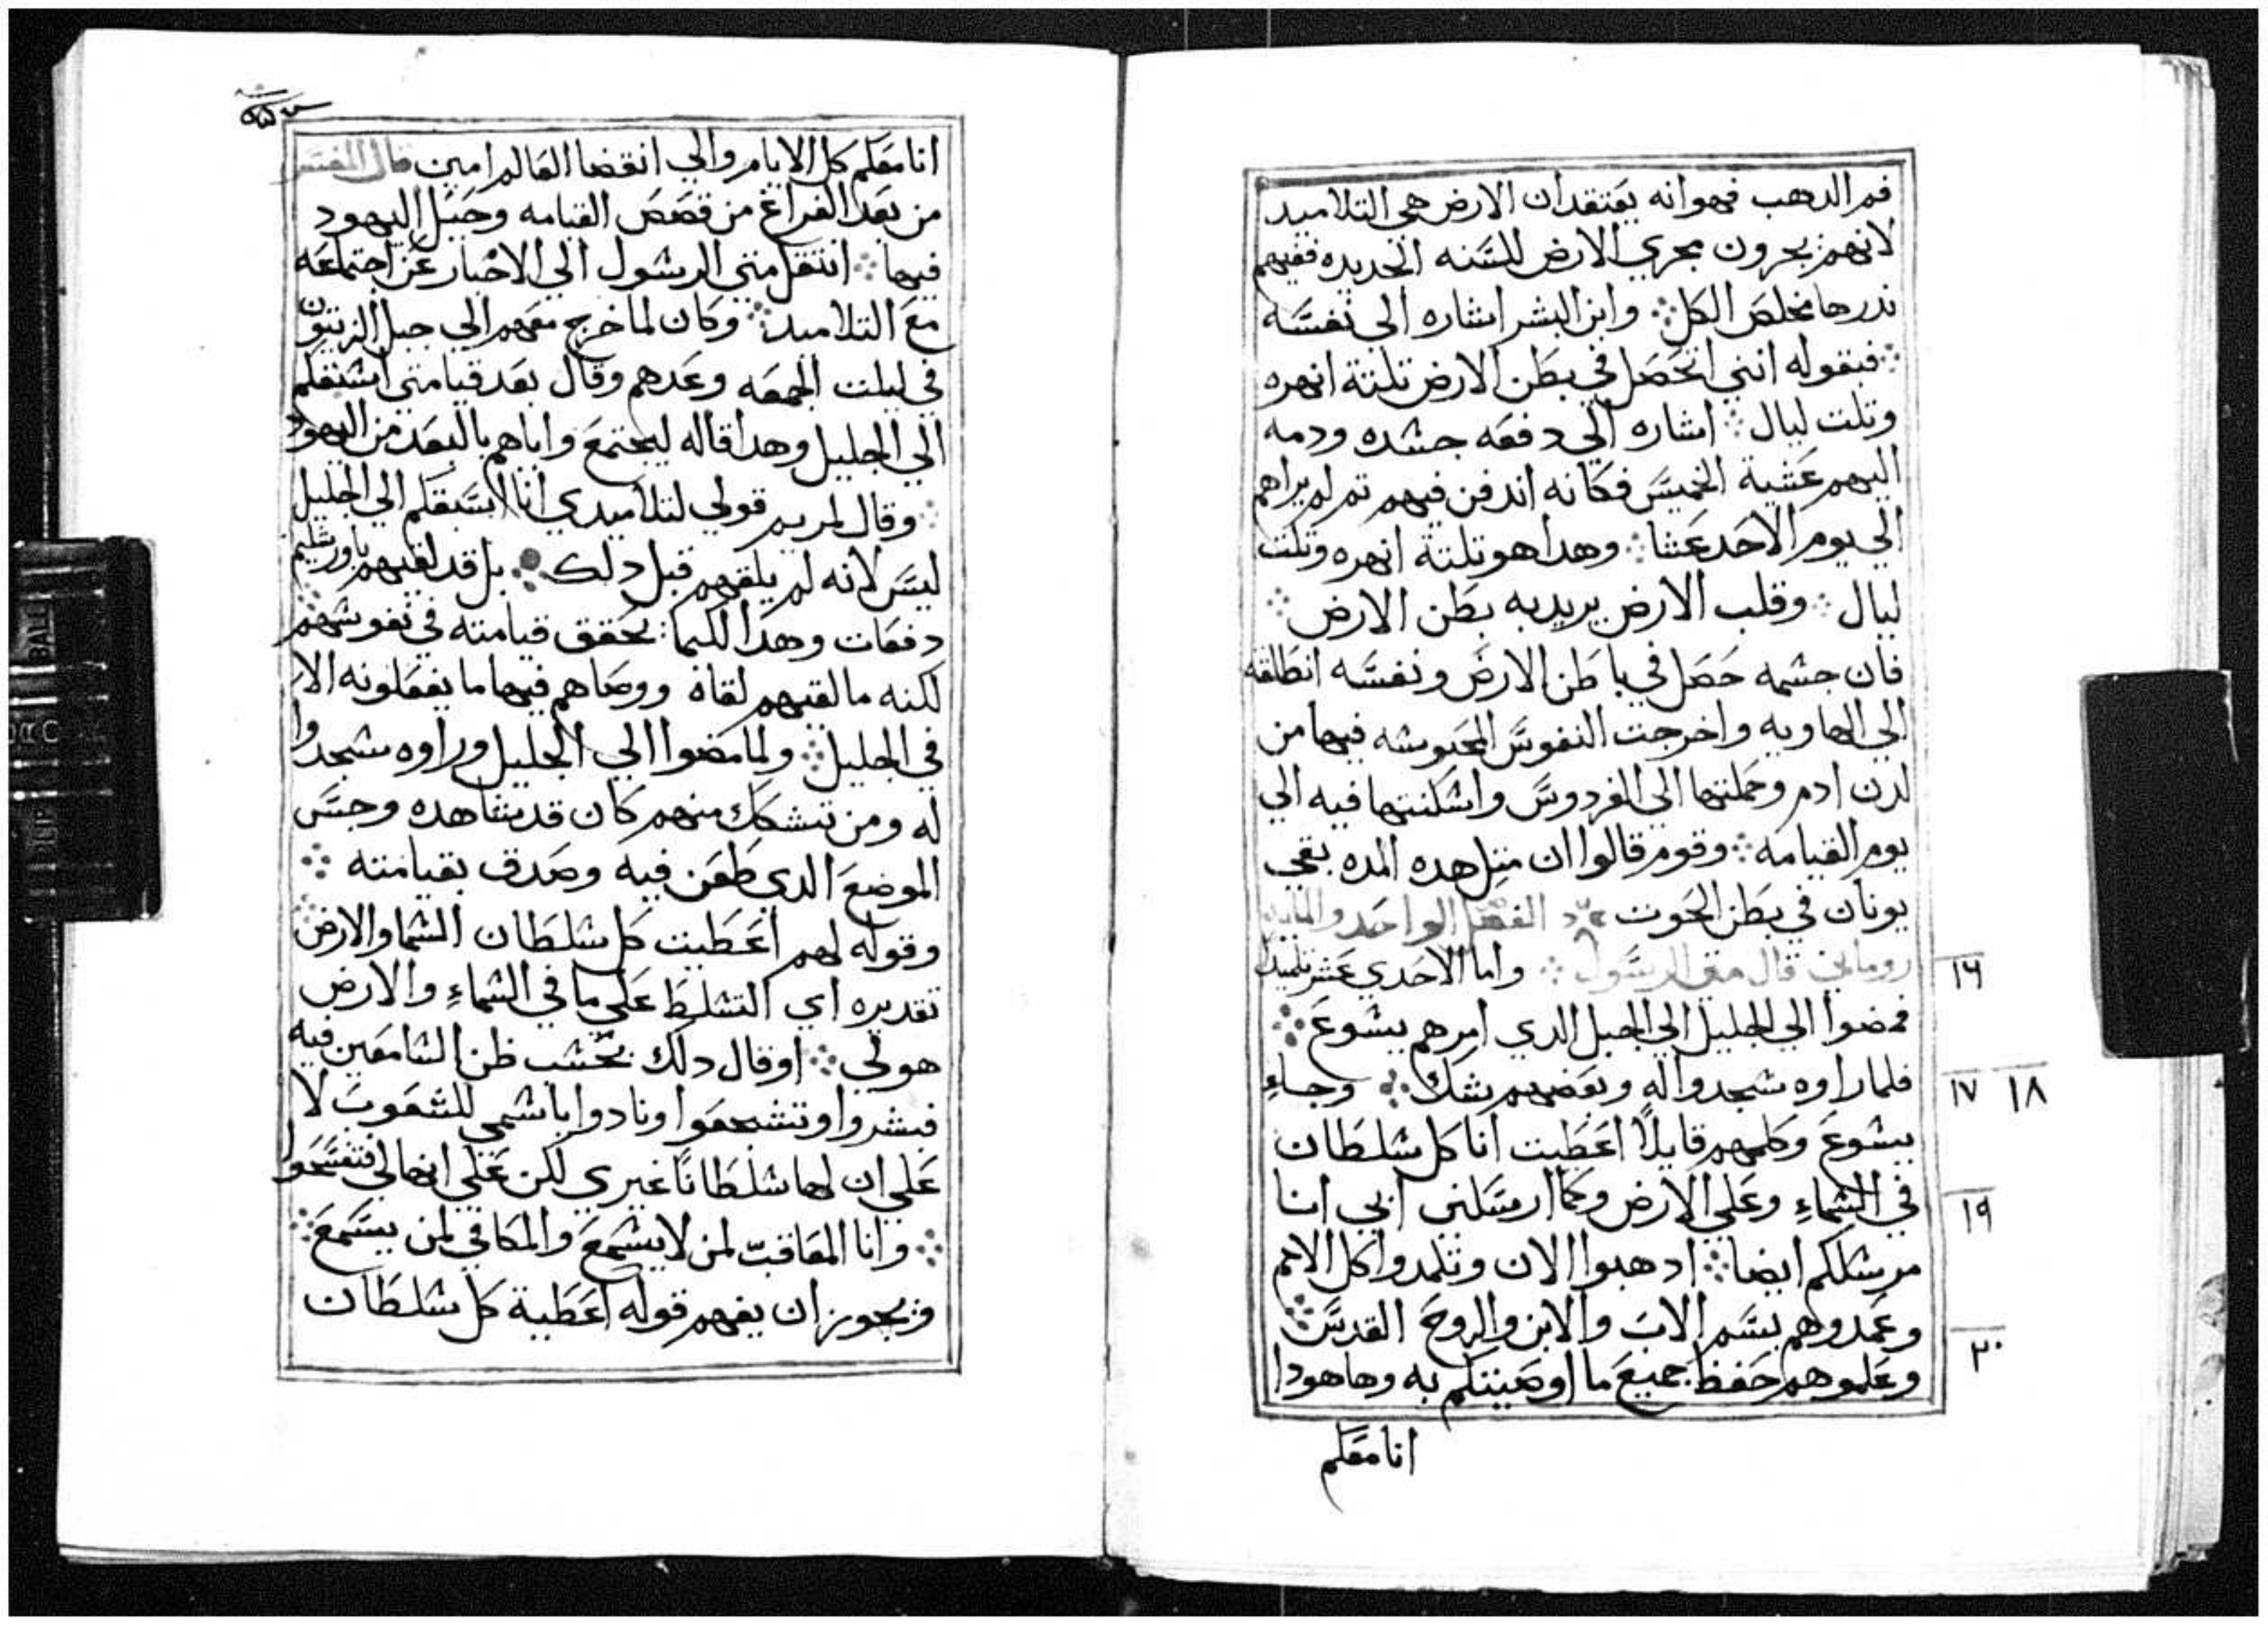 فم الدهب فهو انه يعتقد ان الارض هي التلاميد
لانهم يجرون مجري الارض للسنه الجديده ففيهم
ندرها مخلص الكل ❖ وابن البشر اشاره الى نفسه
❖ فبقوله انني اتحصل في بطن الارض تلتة انهره
وتلت ليال ❖ اشاره الي دفعه جسده ودمه
اليهم عشية الخميس فكانه اندفن فيهم تم لم يراهم
الي يوم الاحد عشا ❖ وهدا هو تلتة انهره وتلت
ليال ❖ وقلب الارض يريد به بطن الارض ❖
فان جسمه حصل في باطن الارض ونفسه انطلقة
الي الهاويه واخرجت النفوس المحبوسه فيها من
لدن ادم وحملتها الي الفردوس واسكنتها فيه الي
يوم القيامه ❖ وقوم قالوا ان متل هده المده بقي
يونان في بطن الحوت ❖ الفصل الواحد والمايه
روماني قال متي الرسول ❖ واما الاحدي عشر تلميدا
١٦
فمضوا الي الجليل الي الجبل الدي امرهم يسوع ❖
فلما راوه سجدوا له وبعضهم شك ❖ وجاء
١٧ ١٨
يسوع وكلمهم قايلا اعطيت انا كل سلطان
في السماء وعلي الارض وكما ارسلني ابي انا
١٩
مرسلكم ايضا ❖ ادهبوا الان وتلمدوا كل الامم
وعمدوهم بسم الاب والابن والروح القدس ❖
٢٠
وعلموهم حفظ جميع ما اوصيتكم به وها هودا
انا معكم
انا معكم كل الايام والي انقضا العالم امين قال المفسر
من بعد الفراغ من قصص القيامه وحيل اليهود
فيها ❖ انتقل متي الرسول الي الاخبار عن اجتماعه
مع التلاميد ❖ وكان لما خرج معهم الي جبل الزيتون
في ليلت الجمعه وعدهم وقال بعد قيامتي اسبقكم
الي الجليل وهدا قاله ليجتمع واياهم بالبعد من اليهود
❖ وقال لمريم قولي لتلاميدي انا اسبقكم الي الجليل
ليس لانه لم يلقهم قبل دلك ❖ بل قد لقيهم باورشليم
دفعات وهدا لكيما يحقق قيامته في نفوسهم ❖
لكنه ما لقيهم لقاه ووصاهم فيها ما يفعلونه الا
في الجليل ❖ ولما مضوا الي الجليل وراوه سجدوا
له ومن تشكك منهم كان قد شاهده وجس
الموضع الدي طعن فيه وصدق بقيامته ❖
وقوله لهم اعطيت كل سلطان السما والارض ❖
تقديره اي التسلط علي ما في السماء والارض
هو لي ❖ او قال دلك بحسب ظن السامعين فيه
فبشروا وتشجعوا ونادوا باسمي للشعوب لا
علي ان لها سلطانا غيري لكن علي انها لي فتفسحوا
❖ وانا المعاقب لمن لا يسمع والمكافي لمن يسمع ❖
ويجوز ان يفهم قوله اعطية كل سلطان